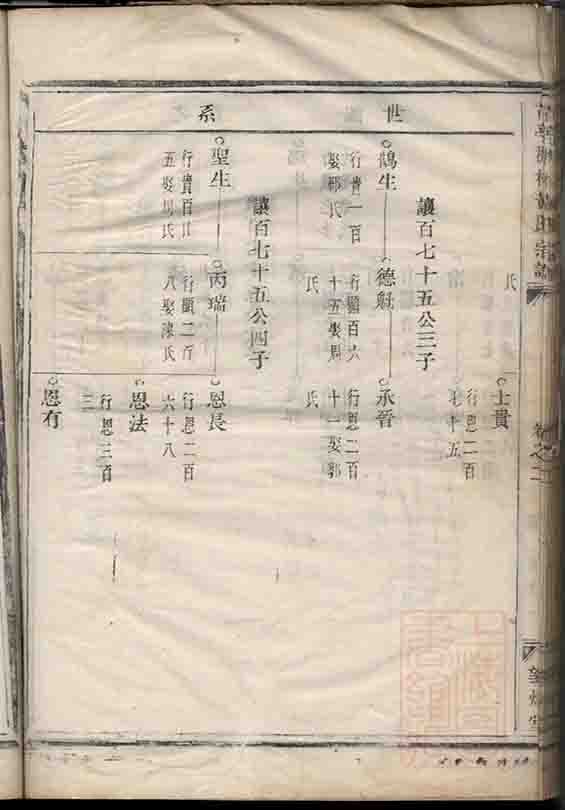 世系
氏
士貴
行恩二百
七十五
讓百七十五公三子
鵠生
行貴一百
娶邢氏
德魁
行顯百六
十五娶周
氏
承晉
行恩二百
十一娶郭
氏
讓百七十五公四子
聖生
行貴百廿
五娶周氏
丙瑞
行顯二百
八娶滕氏
恩長
行恩二百
六十八
恩法
行恩三百
三
恩有
卷之二